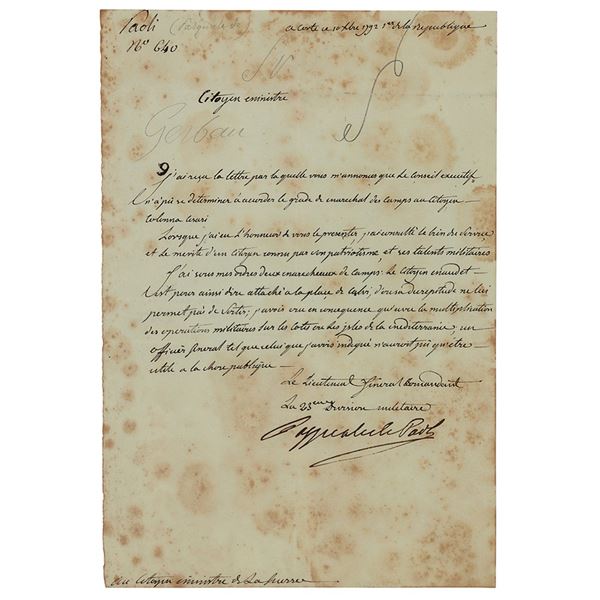 Paoli (Pasquale de)
N° 640
a Corte ce 10 Xbre 1792 1er de la Republique
Citoyen ministre
Gerbau
J'ai reçu la lettre par la quelle vous m'annonces que Le Conseil executif
n'a pu se determiner a accorder le grade de marechal des camps au Citoyen
Colonna Cesari
Lorsque j'ai eu L'honneur de vous le presenter, j'ai consulté le bien du Service,
et Le merite d'un citoyen connu par son patriotisme, et ses talents militaires
J'ai sous mes ordres deux marechaux de Camps: Le Citoyen
est pour ainsi dire attaché a la place de Calvi, d'ou sa decrepitude ne lui
permet pas de Sortir; j'avois cru en consequence qu'avec la multiplication
des operations militaires sur les cotes ou les isles de la mediterranée, un
officier General tel que celui que j'avois indiqué n'auroit pu qu'etre
utile a la chose publique
Le Lieutenant General Commandant
La 23eme Division militaire
Pasquale de Paoli
au Citoyen ministre de La Guerre